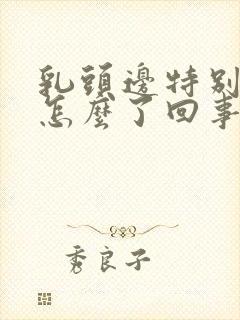 乳頭邊特別
怎麼了回事
秀良子